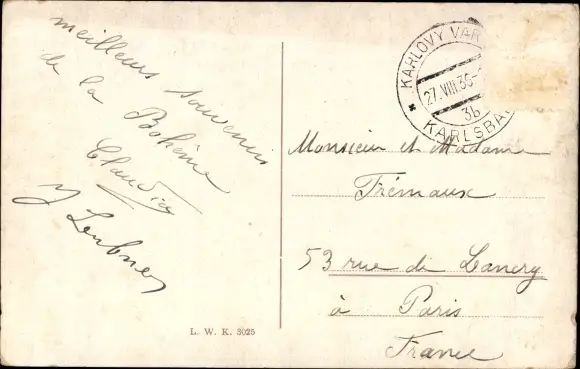 meilleurs souvenirs
de la Bohême
Claudine
J Leubner
L. W. K. 3025
KARLOVY VAR
27.VIII.36
3b
KARLSBA
Monsieur et Madame
Frémaux
53 rue de Lancry
à Paris
France